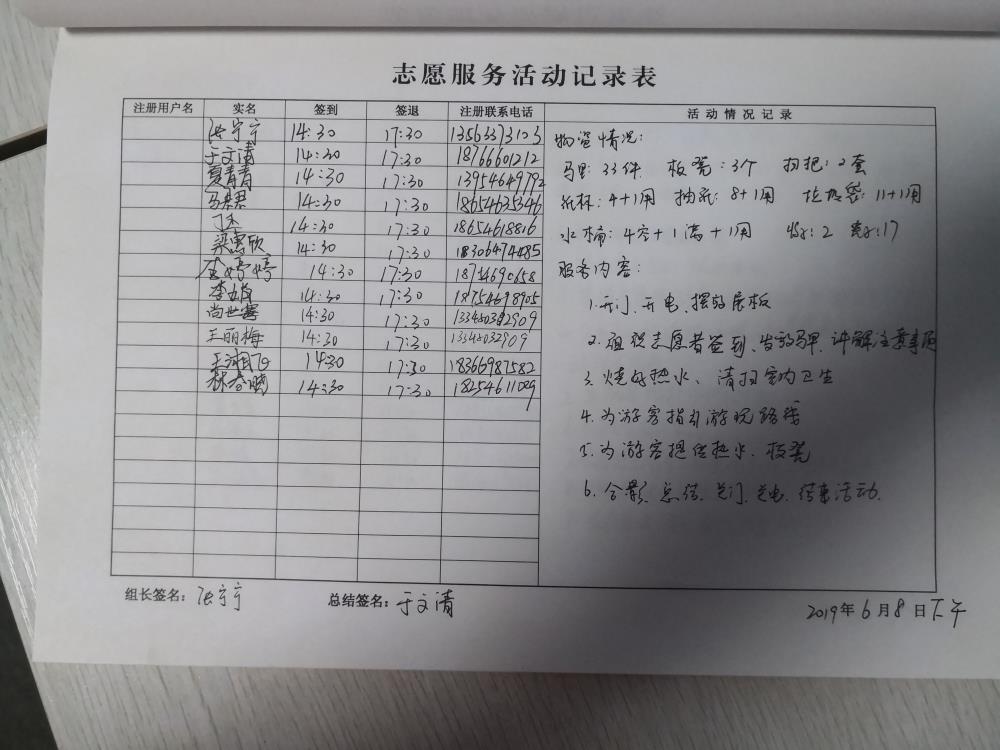 志愿服务活动记录表
注册用户名 实名 签到 签退 注册联系电话 活动情况记录
张宁宁 14:30 17:30 13563373103
于文清 14:30 17:30 18766601212
夏青青 14:30 17:30 13954649792
14:30 17:30 18654635346
14:30 17:30 18654618816
梁惠欣 14:30 17:30 18306474485
李婷婷 14:30 17:30
14:30 17:30 18754698905
14:30 17:30 13345032909
王丽梅 14:30 17:30 13345032909
14:30 17:30 18366987582
14:30 17:30
物资情况:
马甲: 33件 板凳: 3个 扫把: 2套
纸杯: 4+1用 抽纸: 8+1用 垃圾袋: 11+1用
水桶: 4空+1满+1用 2 17
服务内容:
1.开门、开电、摆放展板
2.组织志愿者签到、发放马甲、讲解注意事项
3.烧好热水、清扫室内卫生
4.为游客指引游玩路线
5.为游客提供热水、板凳
6.合影、总结、关门、关电、结束活动.
组长签名: 张宁宁 总结签名: 于文清
2019年6月8日下午